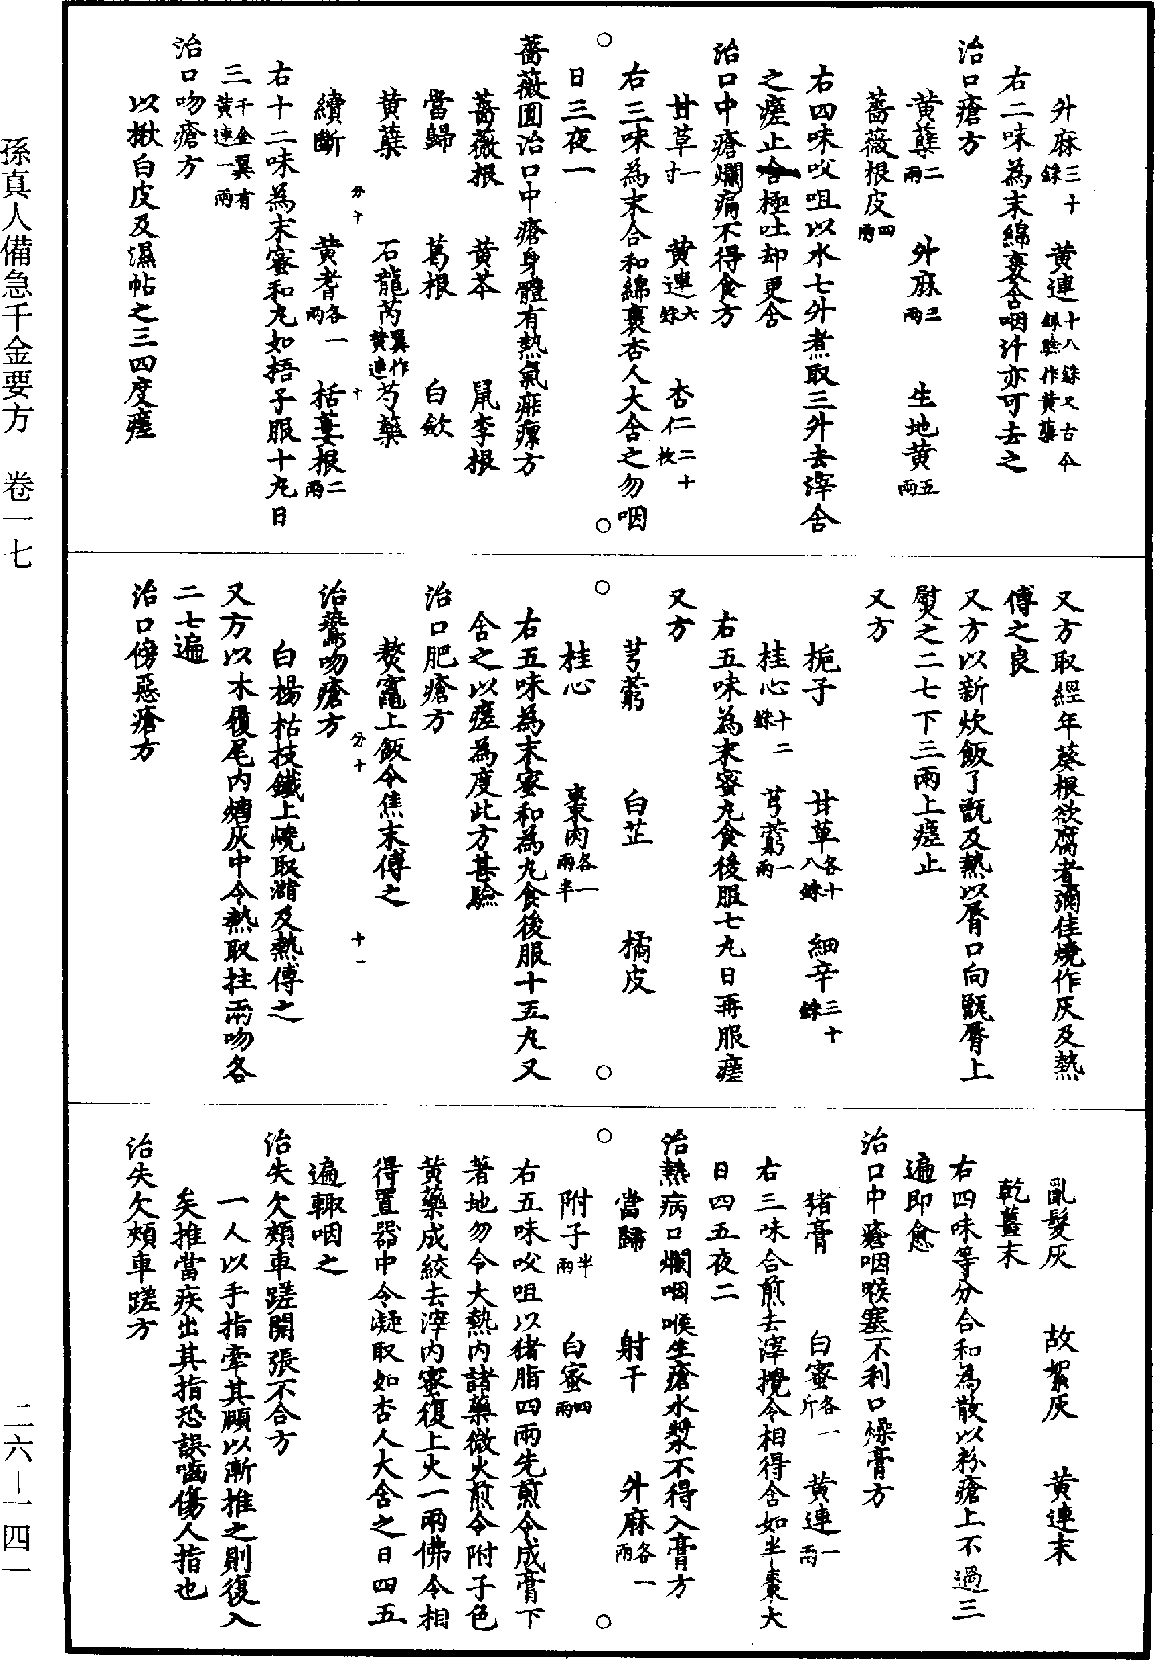 孫真人備急千金要方 卷一七
二六—一四一
外麻三十銖 黄連十八銖又古今録驗作黄蘗
右二味為末綿裹含咽汁亦可去之
治口瘡方
黄蘗二兩 外麻三兩 生地黄五兩
薔薇根皮四兩
右四味㕮咀以水七外煮取三外去滓含
之瘥止含極吐却更含
治口中瘡爛痛不得食方
甘草一寸 黄連六銖 杏仁二十枚
右三味為末合和綿裹杏人大含之勿咽
日三夜一
薔薇圓治口中瘡身體有熱氣痱瘰方
薔薇根 黄芩 鼠李根
當歸 葛根 白斂
黄蘗 石龍芮翼作黄連 芍藥
續斷 黄耆各一兩 栝蔞根二兩
右十二味為末蜜和丸如梧子服十丸日
三千金翼有黄連一兩
治口吻瘡方
以楸白皮及濕帖之三四度瘥
又方取經年葵根欲腐者彌佳燒作灰及熱
傅之良
又方以新炊飯了甑及熱以脣口向甑脣上
熨之二七下三兩上瘥止
又方
梔子 甘草各十八銖 細辛三十銖
桂心十二銖 芎藭一兩
右五味為末蜜丸食後服七丸日再服瘥
又方
芎藭 白芷 橘皮
桂心 棗肉各一兩半
右五味為末蜜和為丸食後服十五丸又
含之以瘥為度此方甚驗
治口肥瘡方
熬竈上飯令焦末傅之
治鷰吻瘡方
白楊枯枝鐵上燒取㴰及熱傅之
又方以木履尾内煻灰中令熱取拄兩吻各
二七遍
治口傍惡瘡方
亂髮灰 故絮灰 黄連末
乾薑末
右四味等分合和為散以粉瘡上不過三
遍即愈
治口中瘡咽喉塞不利口燥膏方
猪膏 白蜜各一斤 黄連一兩
右三味合煎去滓攪令相得含如半棗大
日四五夜二
治熱病口爛咽喉生瘡水漿不得入膏方
當歸 射干 外麻各一兩
附子半兩 白蜜四兩
右五味㕮咀以猪脂四兩先煎令成膏下
著地勿令大熱内諸藥微火煎令附子色
黄藥成絞去滓内蜜復上火一兩佛令相
得置器中令凝取如杏人大含之日四五
遍輙咽之
治失欠頰車蹉開張不合方
一人以手指牽其頤以漸推之則復入
矣推當疾出其指恐誤嚙傷人指也
治失欠頰車蹉方